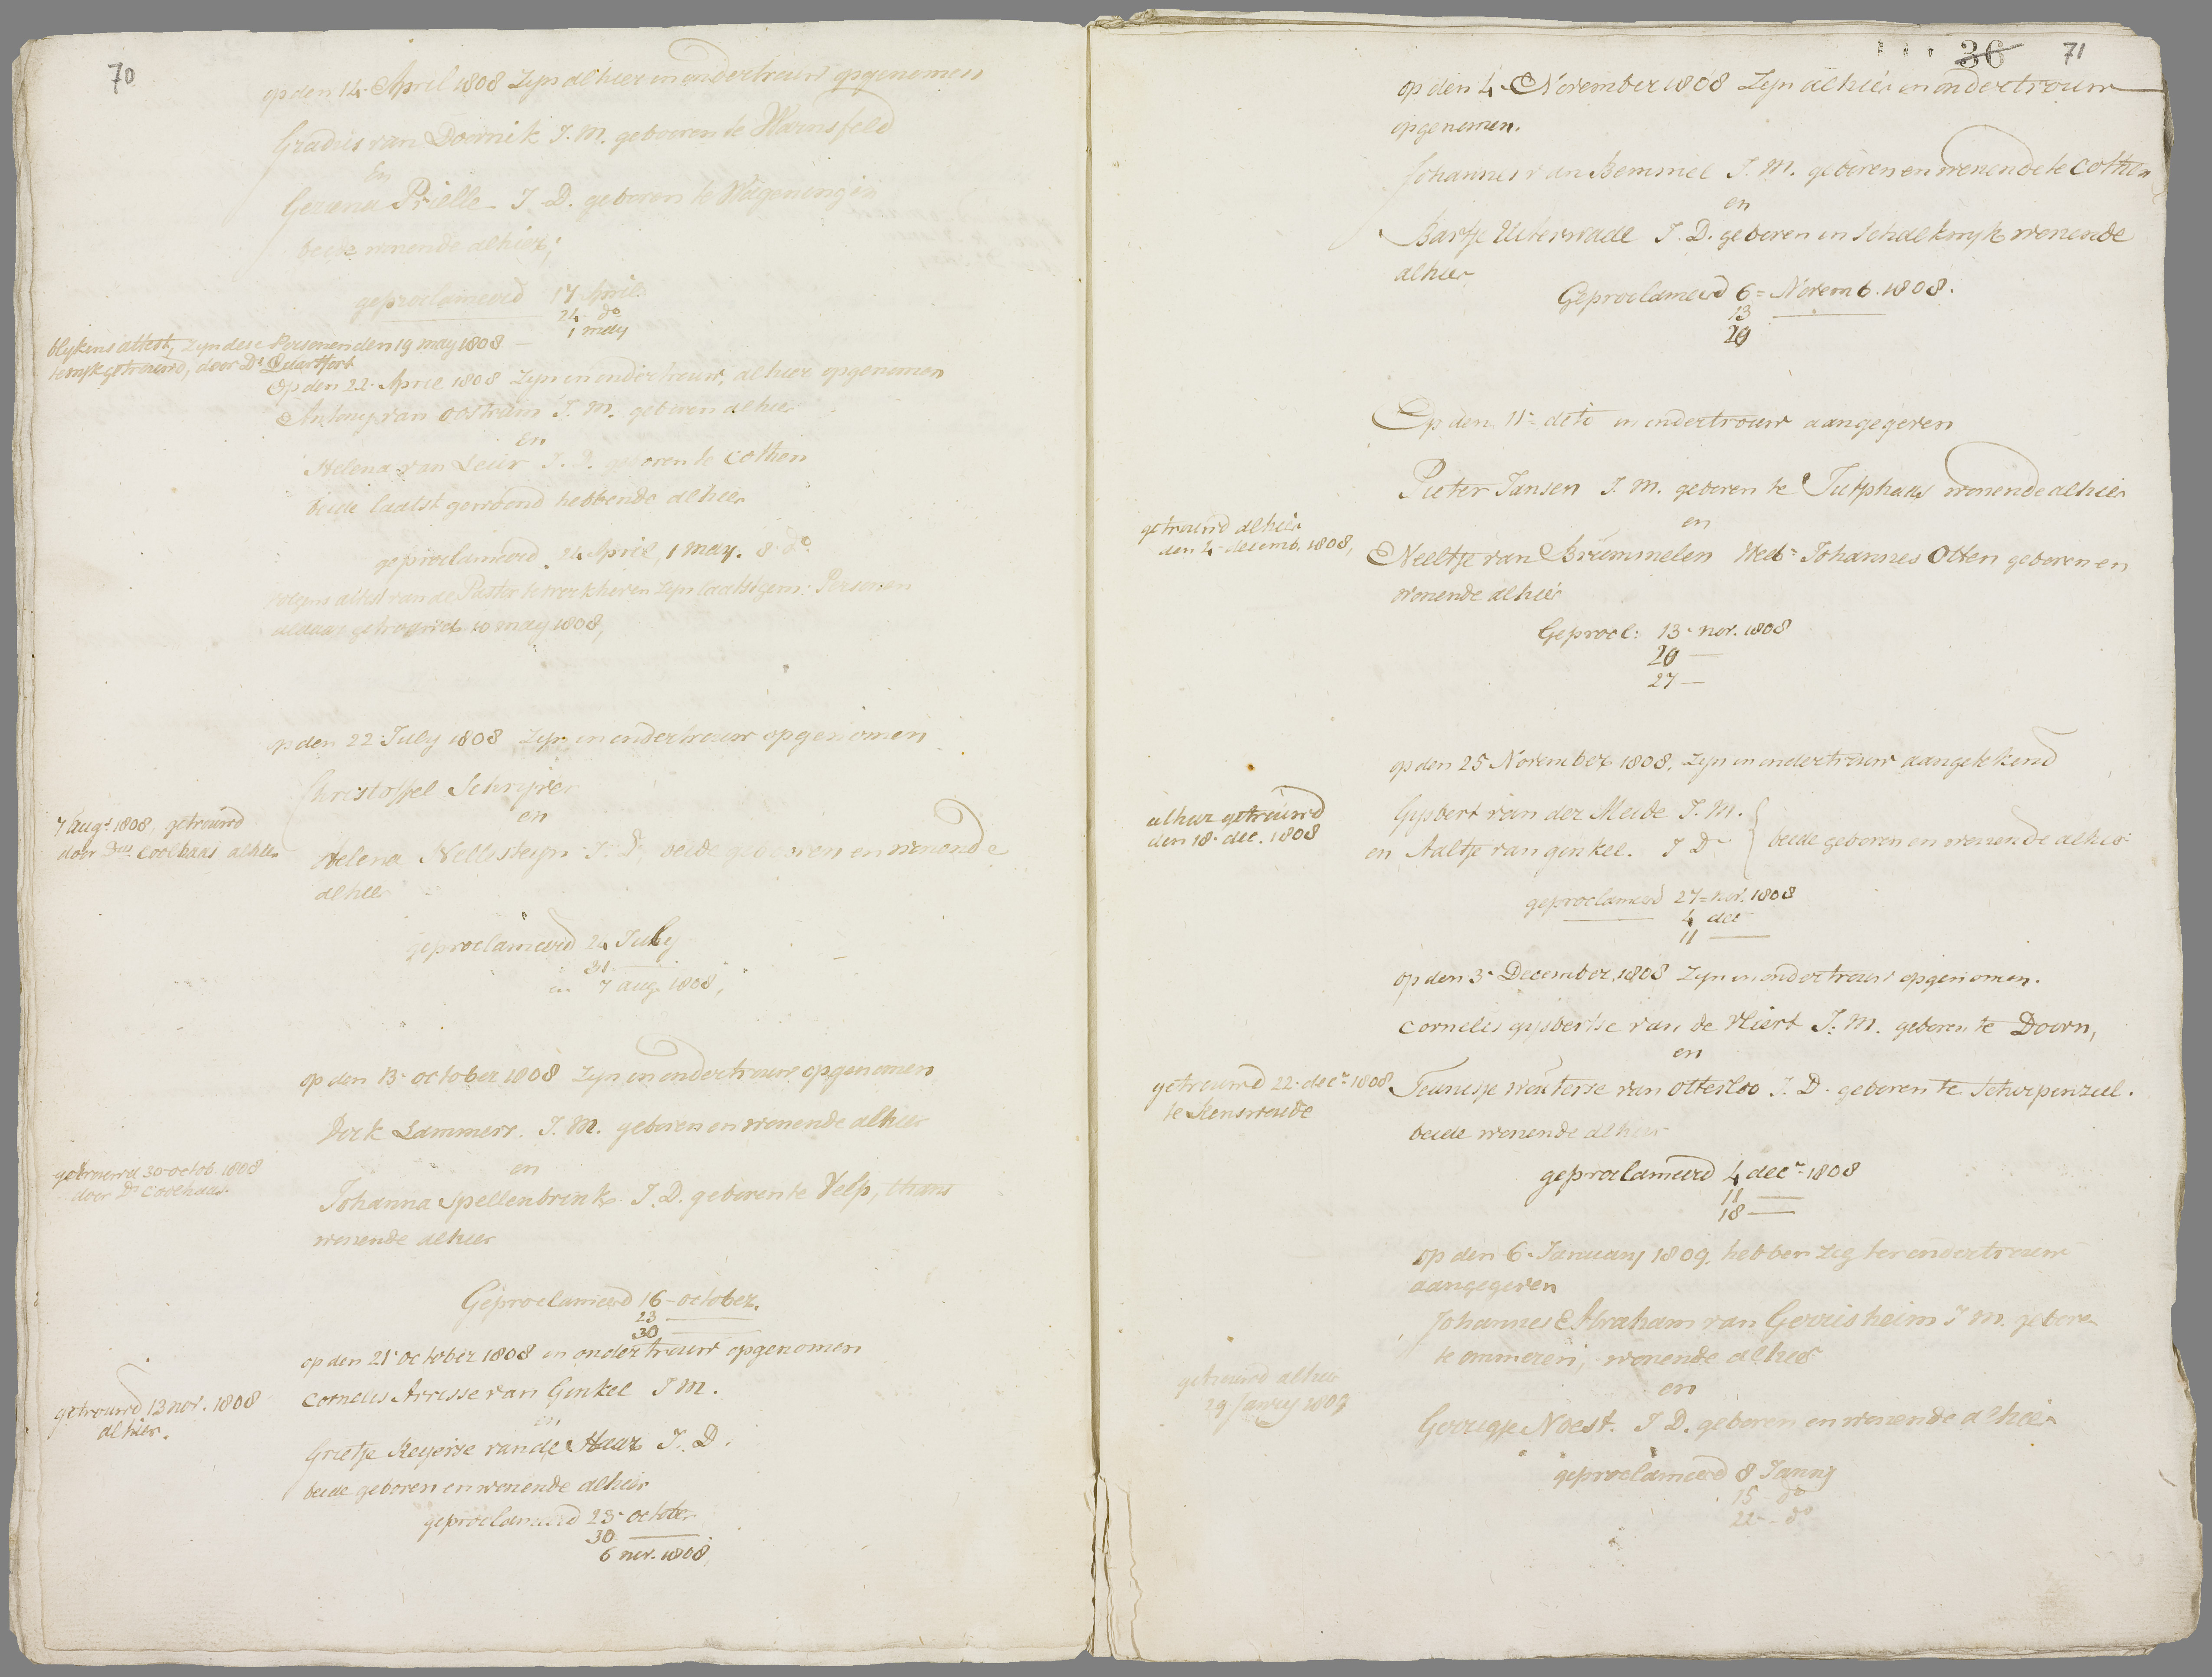 70
op den 14 April 1808 Zyn alhier in ondertrouw opgenomen
Gradus van Doornik J. M. geboren te Warnsfeld
En
Gezena Prielle - J. D. geboren te Wageningen
beide wonende alhier;
geproclameerd 17 April
24 do
1 may
blykens attest, zyn dese Personen den 19 may 1808 -
getrouwd, door Ds
Op den 22 April 1808 Zyn in ondertrouw, alhier opgenomen
Antony van Oostrum J. M. geboren alhier
En
Helena van Leur J. D. geboren te Cothen
beide laatst gewoond hebbende alhier
geproclameerd 24 April, 1 may. 8 do
volgens attest van de Pastor te werkhoven Zyn laatstgem: Personen
aldaar getrouwd 10 may 1808,
op den 22 July 1808 Zyn in ondertrouw opgenomen
Christoffel Schryver
en
7 augt 1808, getrouwd
door Dns Coolhaas alhier
Helena Nellesteyn J. D. beide geboren en wonende
alhier
geproclameerd 24 July
31
en 7 aug. 1808,
op den 13 october 1808 Zyn in ondertrouw opgenomen
Derk Lammers. J. M. geboren en wonende alhier
en
getrouwd 30 octob. 1808
door Ds Coolhaas.
Johanna Spellenbrink J. D. geboren te Velp, thans
wonende alhier
Geproclameerd 16 - october.
23
30
op den 21 October 1808 in ondertrouw opgenomen
Cornelis Arrisse van Ginkel J M.
getrouwd 13 nov. 1808
alhier.
en
Grietje Reyerse van de Haar J. D.
beide geboren en wonende alhier
geproclameerd 23 - october
30
6 nov. 1808
36 71
op den 4 November 1808 Zyn alhier in ondertrouw
opgenomen.
Johannes van Bemmel J. M. geboren en wonende te Cothen
en
Bartje Uiterwade J. D. geboren in Schalkwyk wonende
alhier
Geproclameerd 6 = Novemb. 1808.
13
20
Op den 11 = dito in ondertrouw aangegeven
Pieter Jansen J. M. geboren te Jutphaas wonende alhier
en
getrouwd alhier
den 4 - decemb. 1808,
Neeltje van Brummelen Wed = Johannes Otten geboren en
wonende alhier
Geprocl: 13 - nov. 1808
20 —
27 —
op den 25 November 1808, zyn in ondertrouw aangetekend
Gysbert van der Meide J. M.
alhier getrouwd
den 18 - dec. 1808
en Aaltje van ginkel. J D - beide geboren en wonende alhier
geproclameerd 27 = nov. 1808
4 dec
11 —
op den 3 - December 1808 Zyn in ondertrouw opgenomen.
Cornelis gysbertse van de Vliert J. M. geboren te Doorn,
en
getrouwd 22 - decr 1808
te Renswoude
Teunisje Wouterse van Otterloo J. D. geboren te Scherpenzeel.
beide wonende alhier
geproclameerd 4 decr 1808
11 —
18 —
op den 6 - January 1809. hebben zig ter ondertrouw
aangegeven
Johannes Abraham van Gerrisheim J M. geboren
te ommeren, wonende alhier
getrouwd alhier
29 January 1809
en
Gerrigje Noest. J D. geboren en wonende alhier
geproclameerd 8 Janny
15 - do
22 - do